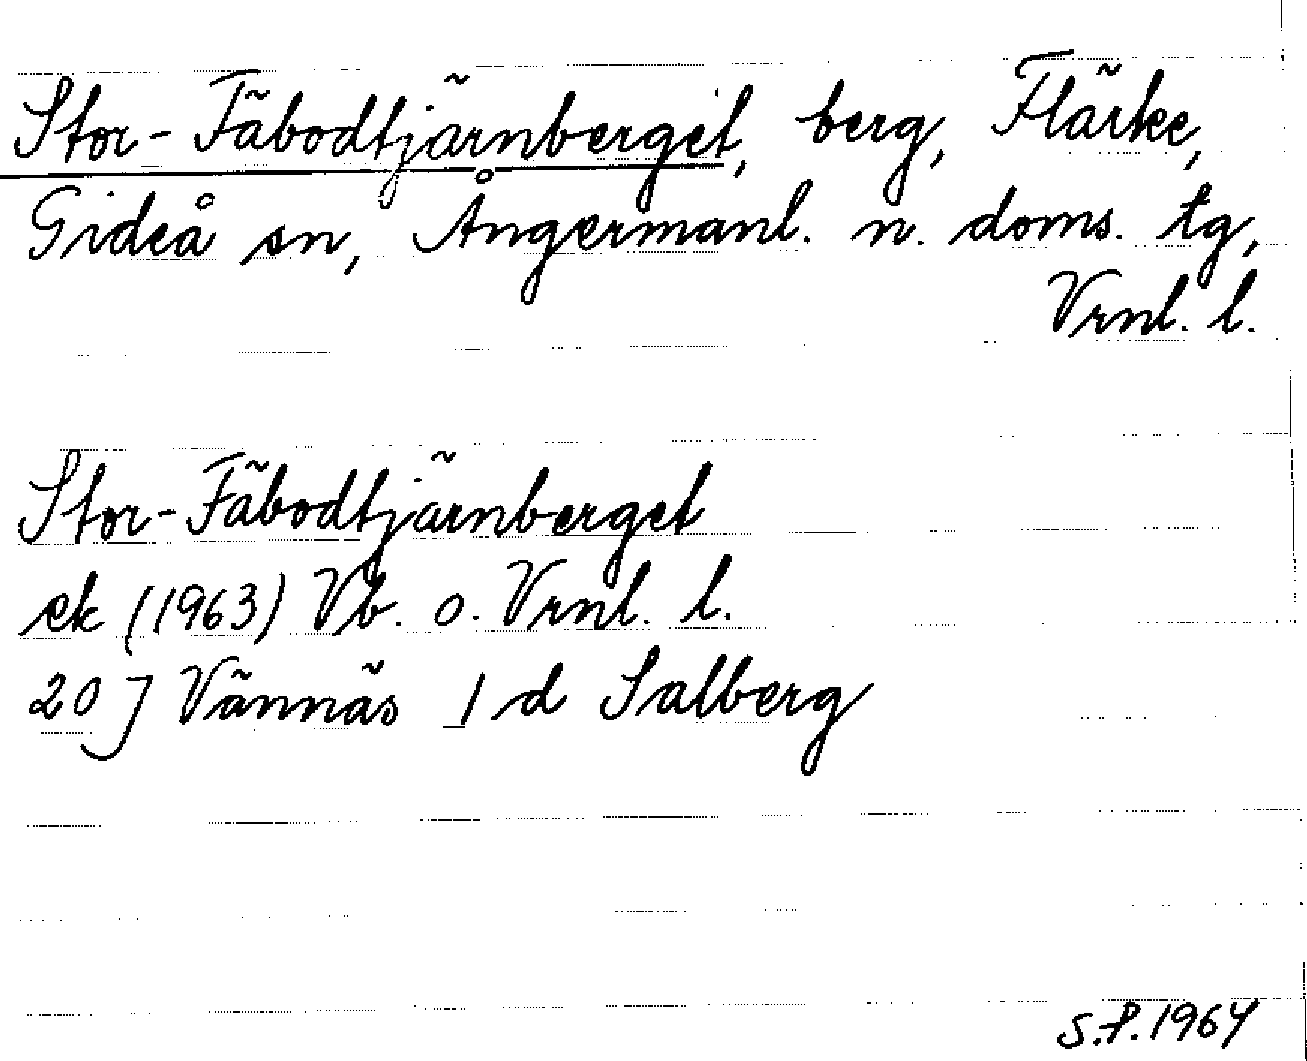 Stor-Fäbodtjärnberget, berg, Flärke,
Gideå sn, Ångermanl. n. doms. tg,
Vrnl. l.
Stor-Fäbodtjärnberget
ek (1963) Vb. o. Vrnl. l.
20 J Vännäs 1 d Salberg
S.P. 1964